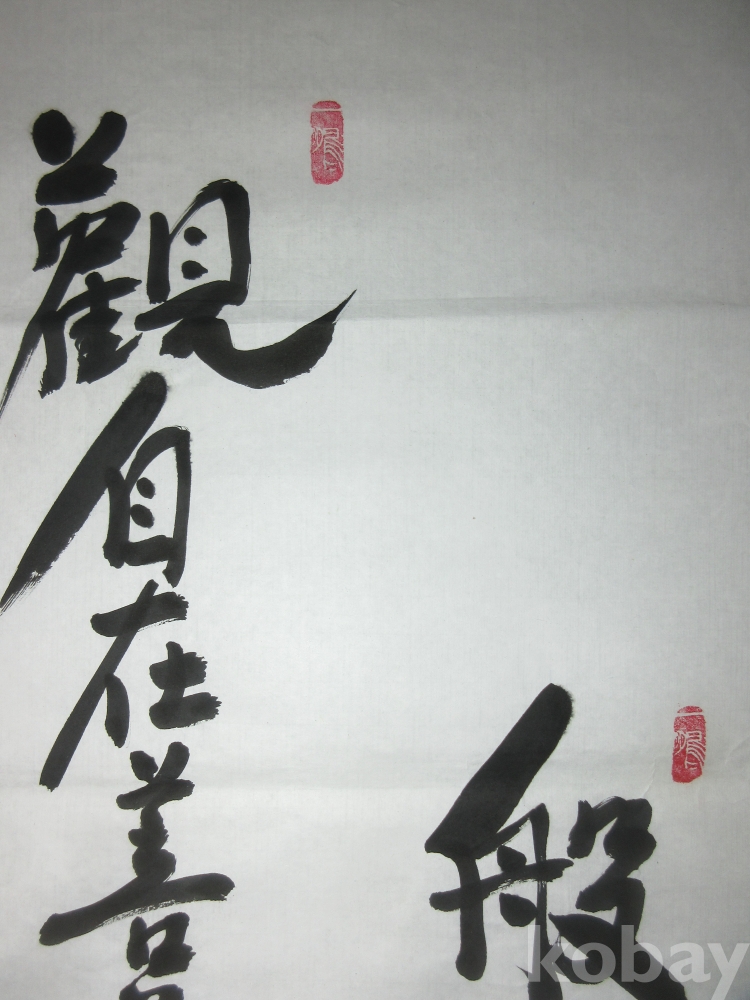 般
觀自在菩